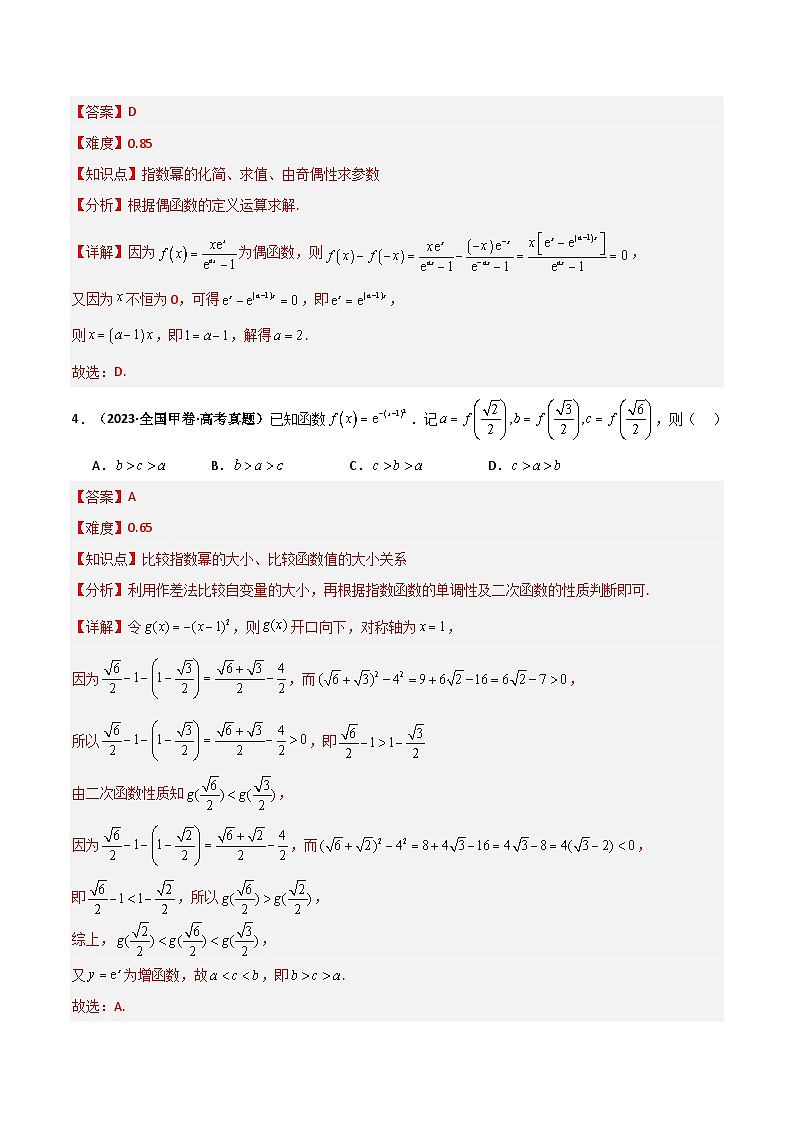 【答案】D
【难度】0.85
【知识点】指数幂的化简、求值、由奇偶性求参数
【分析】根据偶函数的定义运算求解.
【详解】因为 $f(x)=\frac{xe^x}{e^{ax}-1}$ 为偶函数，则 $f(x)-f(-x)=\frac{xe^x}{e^{ax}-1}-\frac{(-x)e^{-x}}{e^{-ax}-1}=\frac{x\left[e^x-e^{(a-1)x}\right]}{e^{ax}-1}=0$，
又因为 $x$ 不恒为 0，可得 $e^x-e^{(a-1)x}=0$，即 $e^x=e^{(a-1)x}$，
则 $x=(a-1)x$，即 $1=a-1$，解得 $a=2$.
故选：D.
4．（2023·全国甲卷·高考真题）已知函数 $f(x)=e^{-(x-1)^2}$．记 $a=f\left(\frac{\sqrt{2}}{2}\right),b=f\left(\frac{\sqrt{3}}{2}\right),c=f\left(\frac{\sqrt{6}}{2}\right)$，则（ ）
A．$b>c>a$ B．$b>a>c$ C．$c>b>a$ D．$c>a>b$
【答案】A
【难度】0.65
【知识点】比较指数幂的大小、比较函数值的大小关系
【分析】利用作差法比较自变量的大小，再根据指数函数的单调性及二次函数的性质判断即可.
【详解】令 $g(x)=-(x-1)^2$，则 $g(x)$ 开口向下，对称轴为 $x=1$，
因为 $\frac{\sqrt{6}}{2}-1-\left(1-\frac{\sqrt{3}}{2}\right)=\frac{\sqrt{6}+\sqrt{3}}{2}-\frac{4}{2}$，而 $(\sqrt{6}+\sqrt{3})^2-4^2=9+6\sqrt{2}-16=6\sqrt{2}-7>0$，
所以 $\frac{\sqrt{6}}{2}-1-\left(1-\frac{\sqrt{3}}{2}\right)=\frac{\sqrt{6}+\sqrt{3}}{2}-\frac{4}{2}>0$，即 $\frac{\sqrt{6}}{2}-1>1-\frac{\sqrt{3}}{2}$
由二次函数性质知 $g(\frac{\sqrt{6}}{2})<g(\frac{\sqrt{3}}{2})$，
因为 $\frac{\sqrt{6}}{2}-1-\left(1-\frac{\sqrt{2}}{2}\right)=\frac{\sqrt{6}+\sqrt{2}}{2}-\frac{4}{2}$，而 $(\sqrt{6}+\sqrt{2})^2-4^2=8+4\sqrt{3}-16=4\sqrt{3}-8=4(\sqrt{3}-2)<0$，
即 $\frac{\sqrt{6}}{2}-1<1-\frac{\sqrt{2}}{2}$，所以 $g(\frac{\sqrt{6}}{2})>g(\frac{\sqrt{2}}{2})$，
综上，$g(\frac{\sqrt{2}}{2})<g(\frac{\sqrt{6}}{2})<g(\frac{\sqrt{3}}{2})$，
又 $y=e^x$ 为增函数，故 $a<c<b$，即 $b>c>a$.
故选：A.